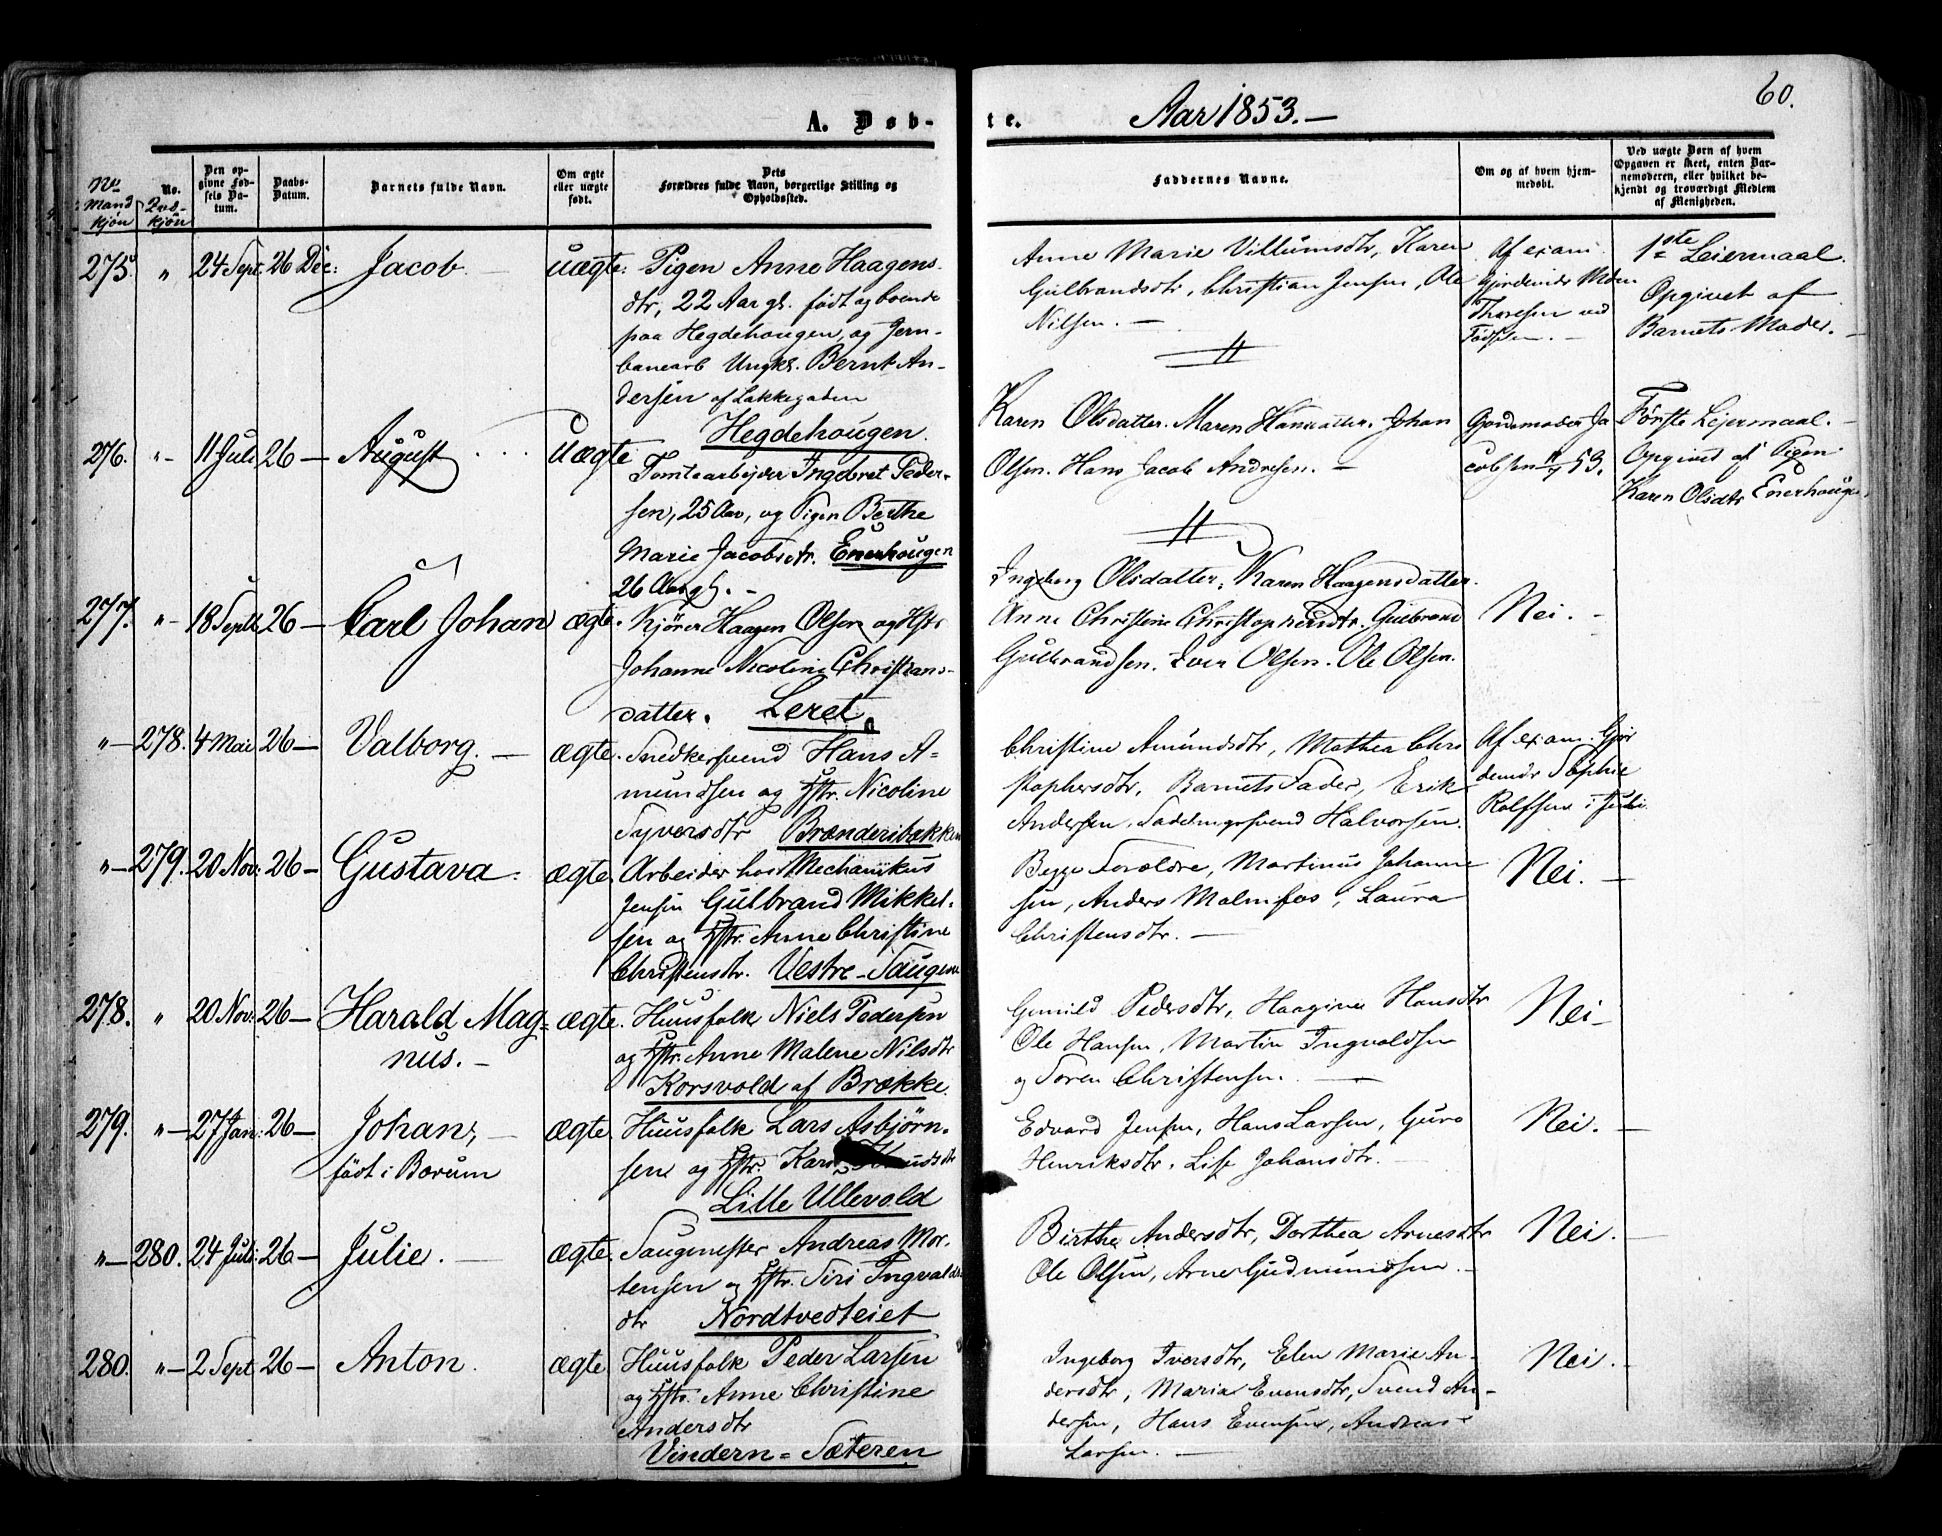 A. Døb-
te.
Aar 1853. —
60.
No. Mandkjøn
No. Qvd-kjøn
Den opgivne Fødsels Datum.
Daabs-Datum.
Barnets fulde Navn.
Om ægte eller uægte født.
Dets Forældres fulde Navn, borgerlige Stilling og Opholdssted.
Faddernes Navne.
Om og af hvem hjemmedøbt.
Ved uægte Børn af hvem Opgaven er skeet, enten Barnemoderen, eller hvilket bekjendt og troværdigt Medlem af Menigheden.
275. " 24 Sept. 26 Dec: Jacob. — uægte.
Pigen Anne Haagens-
dtr, 22 Aar gl. født og boende
paa Hegdehougen, og Jern-
banearb Ungk. Bernt An-
dersen af Lakkegaden
Hegdehougen.
Anne Marie Villumsdtr, Karen
Gulbrandsdtr, Christian Jensen, Ole
Nilsen. —
Af exam.
Gjordemdr Moen
Thoresen ved
Fødselen. —
1ste Leiermaal.
Opgivet af
Barnets Moder. —
276. " - 11 Juli 26 — August . . . uægte
Tomtearbejder Ingebret Peder-
sen, 25 Aar, og Pigen Berthe
Marie Jacobsdtr. Enerhougen
26 Aar gl. —
Karen Olsdatter. Maren Hansdatter. Johan
Olsen. Hans Jacob Andresen. —
Gjordemoder Ja
cobsen 53.
Første Lejermaal. —
Opgivet af Pigen
Karen Olsdtr Enerhougen
277. " - 18 Septb 26 — Carl Johan ægte.
Kjører Haagen Olsen og Hstr
Johanne Nicoline Christians-
datter. Leret.
Ingeborg Olsdatter. Karen Haagensdatter.
Anne Christine Christophersdtr. Gulbrand
Gulbrandsen. Iver Olsen. Ole Olsen.
Nei. —
" — 278. 4 Mai 26 — Valborg. — ægte.
Snedkersvend Hans A-
mundsen og Hstr. Nicoline
Syversdtr Brænderibakken
Christine Amundsdtr, Mathea Chri
stophersdtr, Barnets Fader, Erik
Andersen, Sadelmagersvend Halvorsen.
Af exam. Gjor
demdr Sophie
Rolfsen i Juli.
" — 279. 20 Nov: 26 — Gustava. ægte.
Arbeider hos Mechanikus
Jensen Gulbrand Mikkel-
sen og Hstr. Anne Christine
Christensdtr. Vestre-Saugene
Begge Forældre, Martinus Johanne
sen, Anders Malmfos, Laura
Christensdtr. —
Nei. —
278. " 20 Nov: 26 — Harald Mag-
nus. — ægte.
Huusfolk Niels Pedersen
og Hstr. Anne Malene Nilsdtr
Korsvold af Brække.
Gunild Pedersdtr, Haagine Hansdtr
Ole Hansen, Martin Ingvaldsen
og Søren Christensen. —
Nei —
279. " — 27 Jan: 26 — Johan, —
født i Bærum
ægte.
Huusfolk Lars Asbjørn-
sen og Hstr. Kari Knudsdtr
Lille Ullevold
Edvard Jensen, Hans Larsen, Guro
Henriksdtr, Lise Johansdtr. —
Nei. —
" — 280. 24 Juli: 26 — Julie. — ægte.
Saugmester Andreas Mor-
tensen og Hstr. Siri Ingvalds
dtr Nordtvedteiet
Birthe Andersdtr, Dorthea Arnesdtr
Ole Olsen, Arne Gudmundsen. —
Nei. —
280. " — 2 Sept 26 — Anton. ægte
Huusfolk Peder Larsen
og Hstr. Anne Christine
Andersdtr
Vindern=Sæteren
Ingeborg Iversdtr, Elen Marie An-
dersdtr, Maria Evensdtr, Svend An-
dersen, Hans Evensen, Andreas
Larsen. —
Nei. —